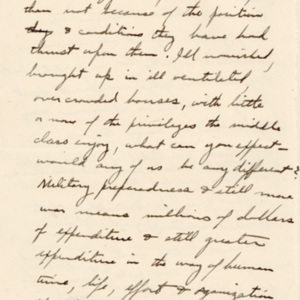 them not because of the position
they & conditions they have had
thrust upon them. Ill nourished,
brought up in ill ventilated
overcrowded houses, with little
or none of the privileges the middle
class enjoy, what can you expect –
would any of us be any different?
Military preparedness & still more
war means millions of dollars
of expenditure & still greater
expenditure in the way of human
time, life, effort & organization